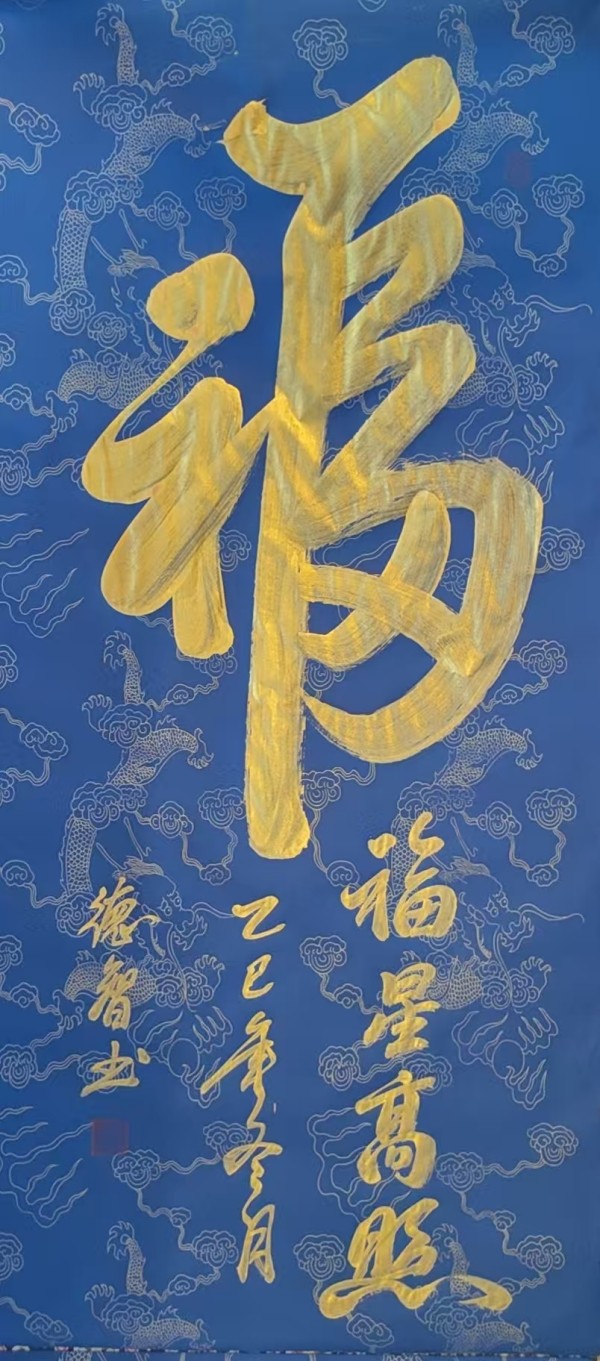 福
福星高照
乙巳年冬月
德智书